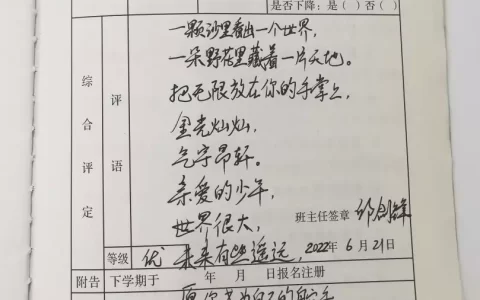 是否下降：是（ ）否（ ）
综合评定
评语
一颗沙里看出一个世界，
一朵野花里藏着一片天地。
把无限放在你的手掌上，
金光灿灿，
气宇昂轩。
亲爱的少年，
世界很大，
班主任签章
等级 优 未来有些遥远， 2022年6月21日
附告 下学期于 年 月 日报名注册
愿你